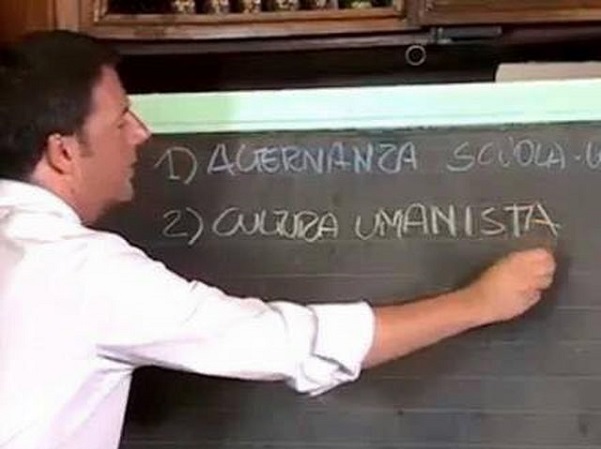 1) ALTERNANZA SCUOLA-L
2) CULTURA UMANISTA